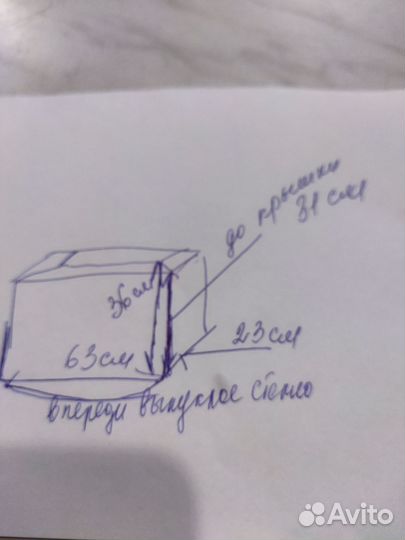 до крышки
31 см
36см
23см
63см
впереди выпуклое стекло
Avito